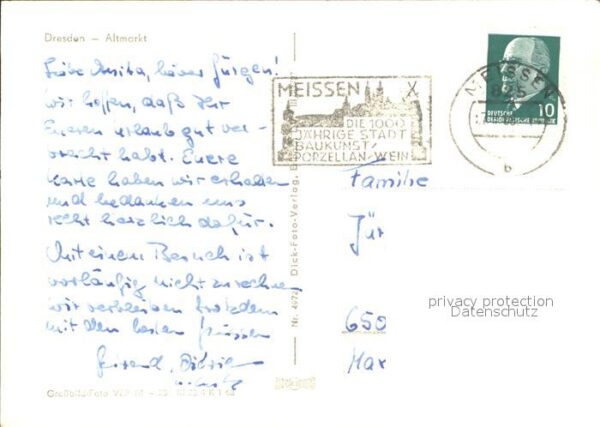 Dresden — Altmarkt
Liebe Anita, lieber Jürgen!
Wir hoffen, daß Ihr
Euren Urlaub gut ver-
bracht habt. Euere
Karte haben wir erhalten
und bedanken uns
recht herzlich dafür.
Mit einem Besuch ist
vorläufig nicht zu rechnen
wir verbleiben trotzdem
mit den besten Grüssen
Großbild-Foto
Dick-Foto-Verlag,
MEISSEN
DIE 1000
JÄHRIGE STADT
BAUKUNST/
PORZELLAN/WEIN
MEISSEN
b
10
DEUTSCHE
Familie
Jür
650
Max
privacy protection
Datenschutz